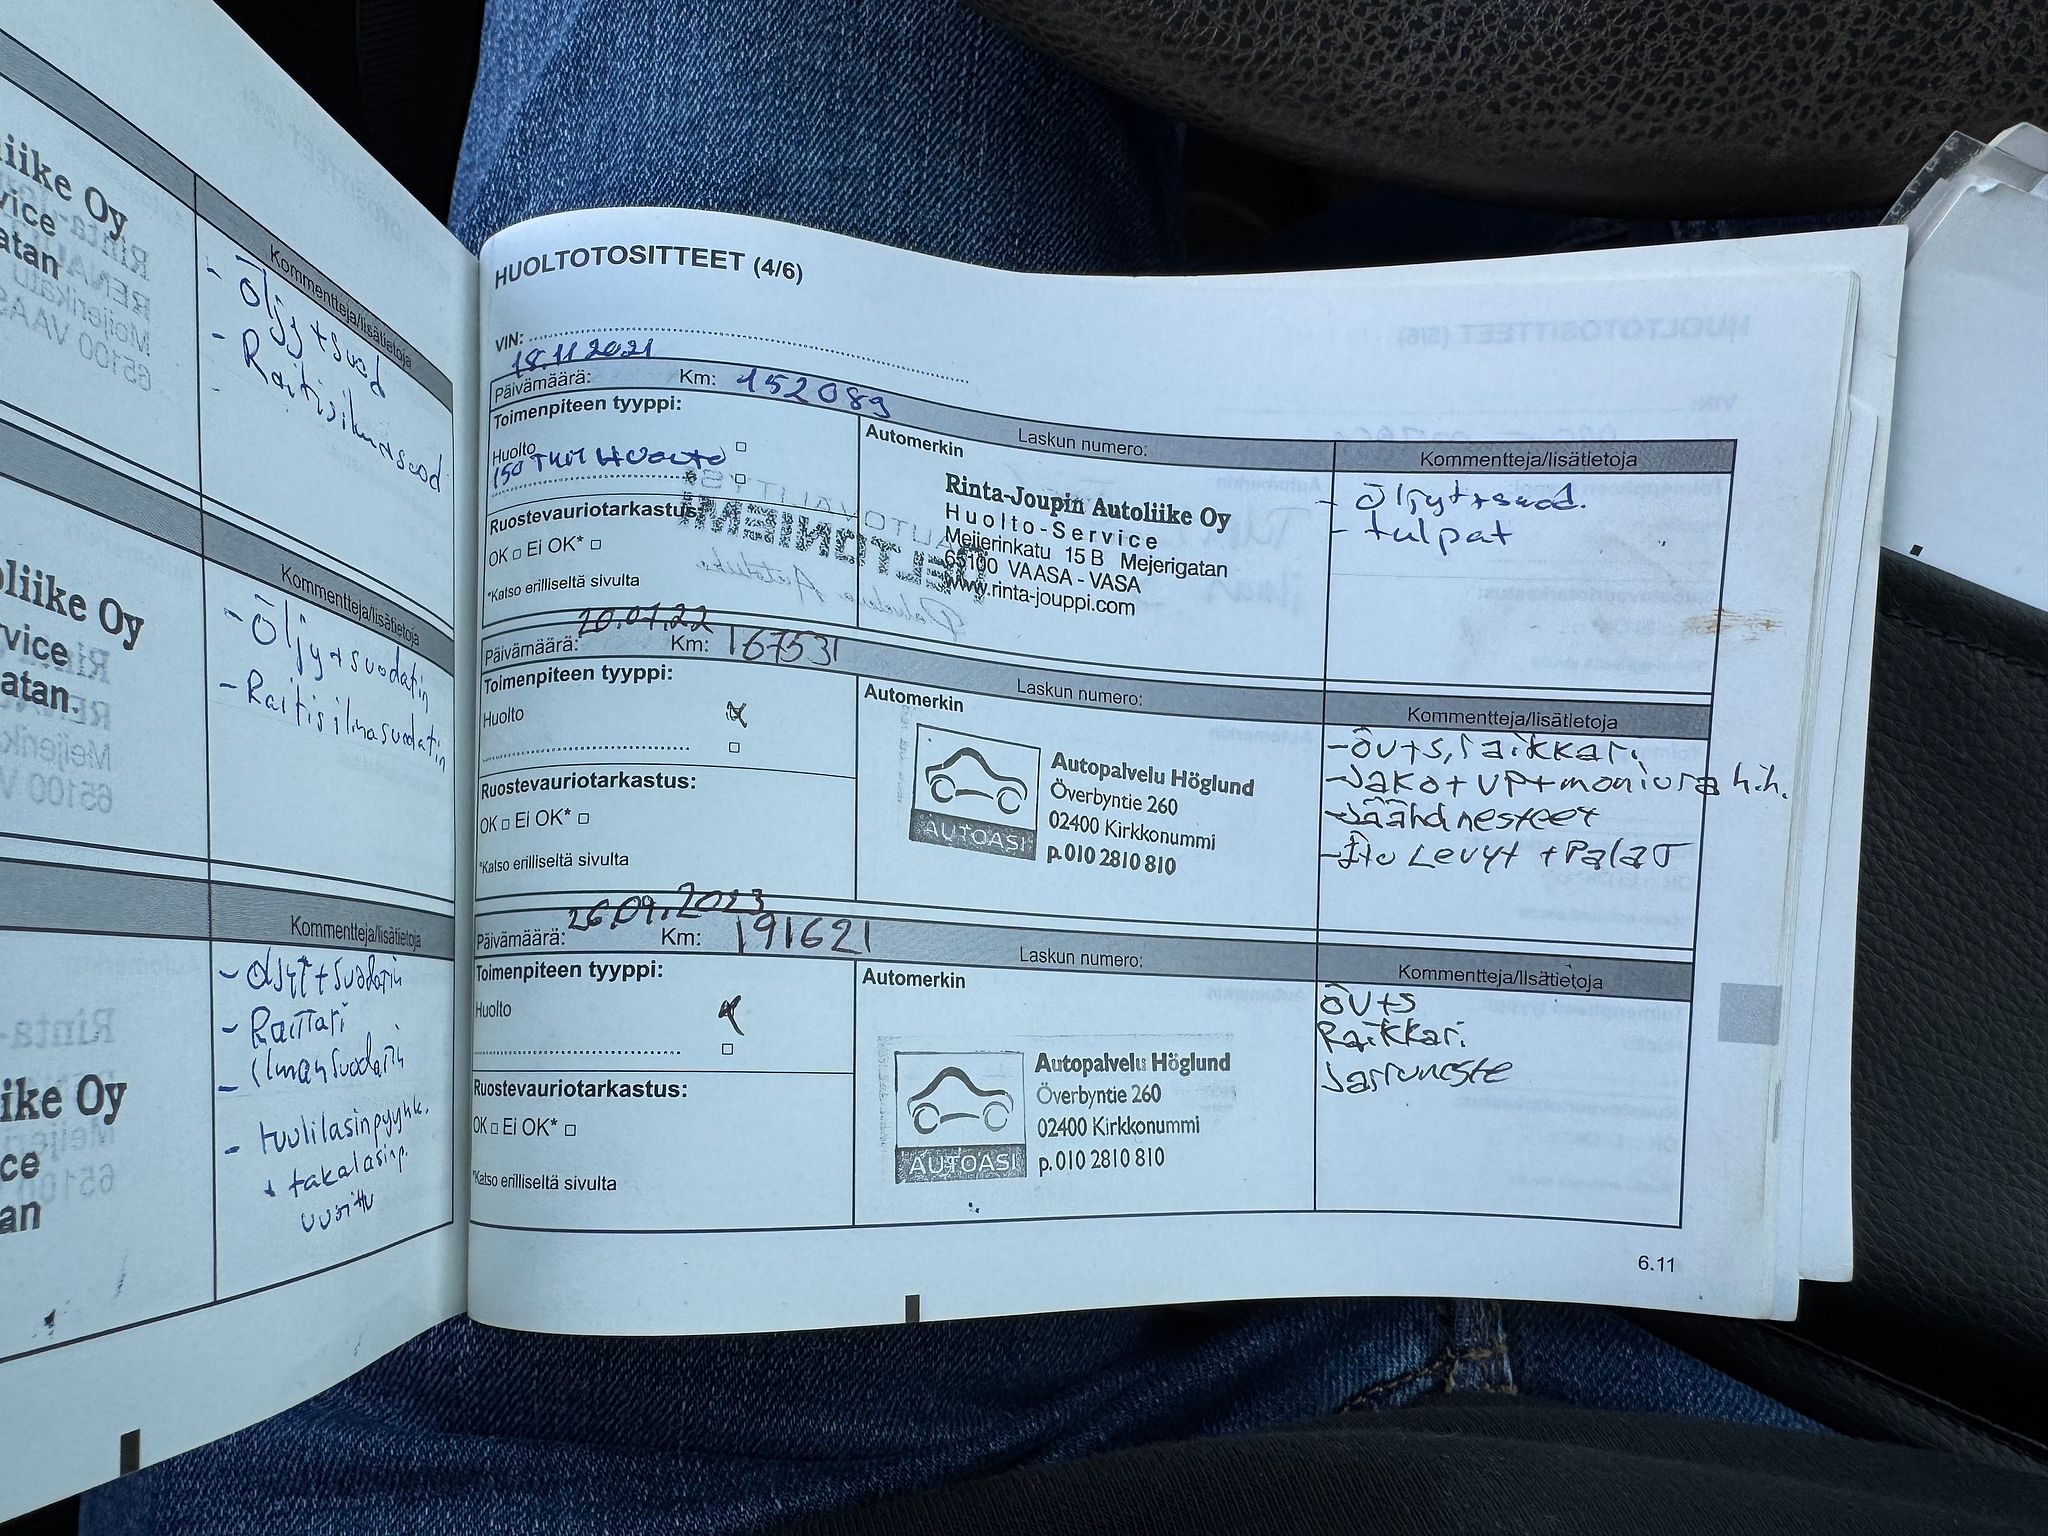 iike Oy
vice
atan
Kommentteja/lisätietoja
- Öljy + suod
- Raitisilmasuod.
-
oliike Oy
rvice
atan.
Kommentteja/lisätietoja
- Öljy + suodatin
- Raitisilmasuodatin
ike Oy
ce
an
Kommentteja/lisätietoja
- öljyt + suodatin
- Raittari
- ilmansuodatin
- tuulilasinpyyhk.
+ takalasinp.
uusittu
HUOLTOTOSITTEET (4/6)
VIN:
18.11 2021
Päivämäärä: Km: 152089
Toimenpiteen tyyppi:
Huolto □
150 TKM HUOLTO □
Ruostevauriotarkastus:
OK □ Ei OK* □
*Katso erilliseltä sivulta
Automerkin
Laskun numero:
Rinta-Joupin Autoliike Oy
Huolto-Service
Meijerinkatu 15 B Mejerigatan
65100 VAASA - VASA
www.rinta-jouppi.com
Kommentteja/lisätietoja
- öljyt + suod.
- tulpat
20.07.22
Päivämäärä: Km: 167531
Toimenpiteen tyyppi:
Huolto x
□
Ruostevauriotarkastus:
OK □ Ei OK* □
*Katso erilliseltä sivulta
Automerkin
Laskun numero:
AUTOASI
Autopalvelu Höglund
Överbyntie 260
02400 Kirkkonummi
p. 010 2810 810
Kommentteja/lisätietoja
- ÖV+S, raikkari.
- Jako + VP + moniura h.h.
- Jäähd nesteet
- Levyt + Palat
26.09.2023
Päivämäärä: Km: 191621
Toimenpiteen tyyppi:
Huolto x
□
Ruostevauriotarkastus:
OK □ Ei OK* □
*Katso erilliseltä sivulta
Automerkin
Laskun numero:
AUTOASI
Autopalvelu Höglund
Överbyntie 260
02400 Kirkkonummi
p. 010 2810 810
Kommentteja/lisätietoja
ÖV+S
Raikkari.
Jarruneste
6.11